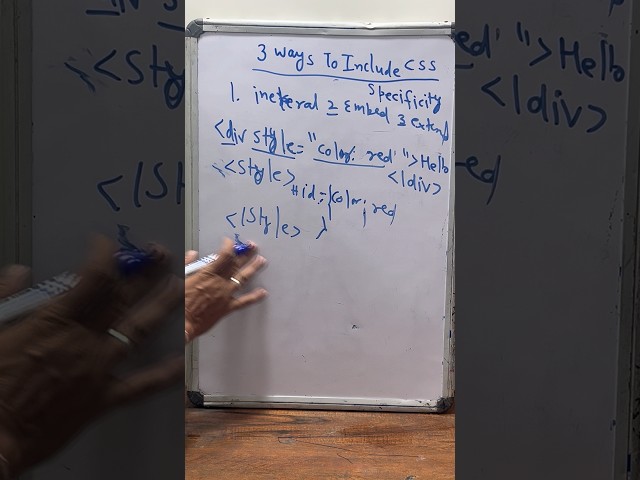 3 Ways To Include CSS
Specificity
1. ineternal 2 Embed 3 extend
<div style="color: red">Hello
</div>
<style>
#id:{color; red
</style> }